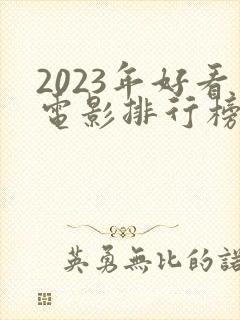 2023年好看
電影排行榜
英勇無比的諾